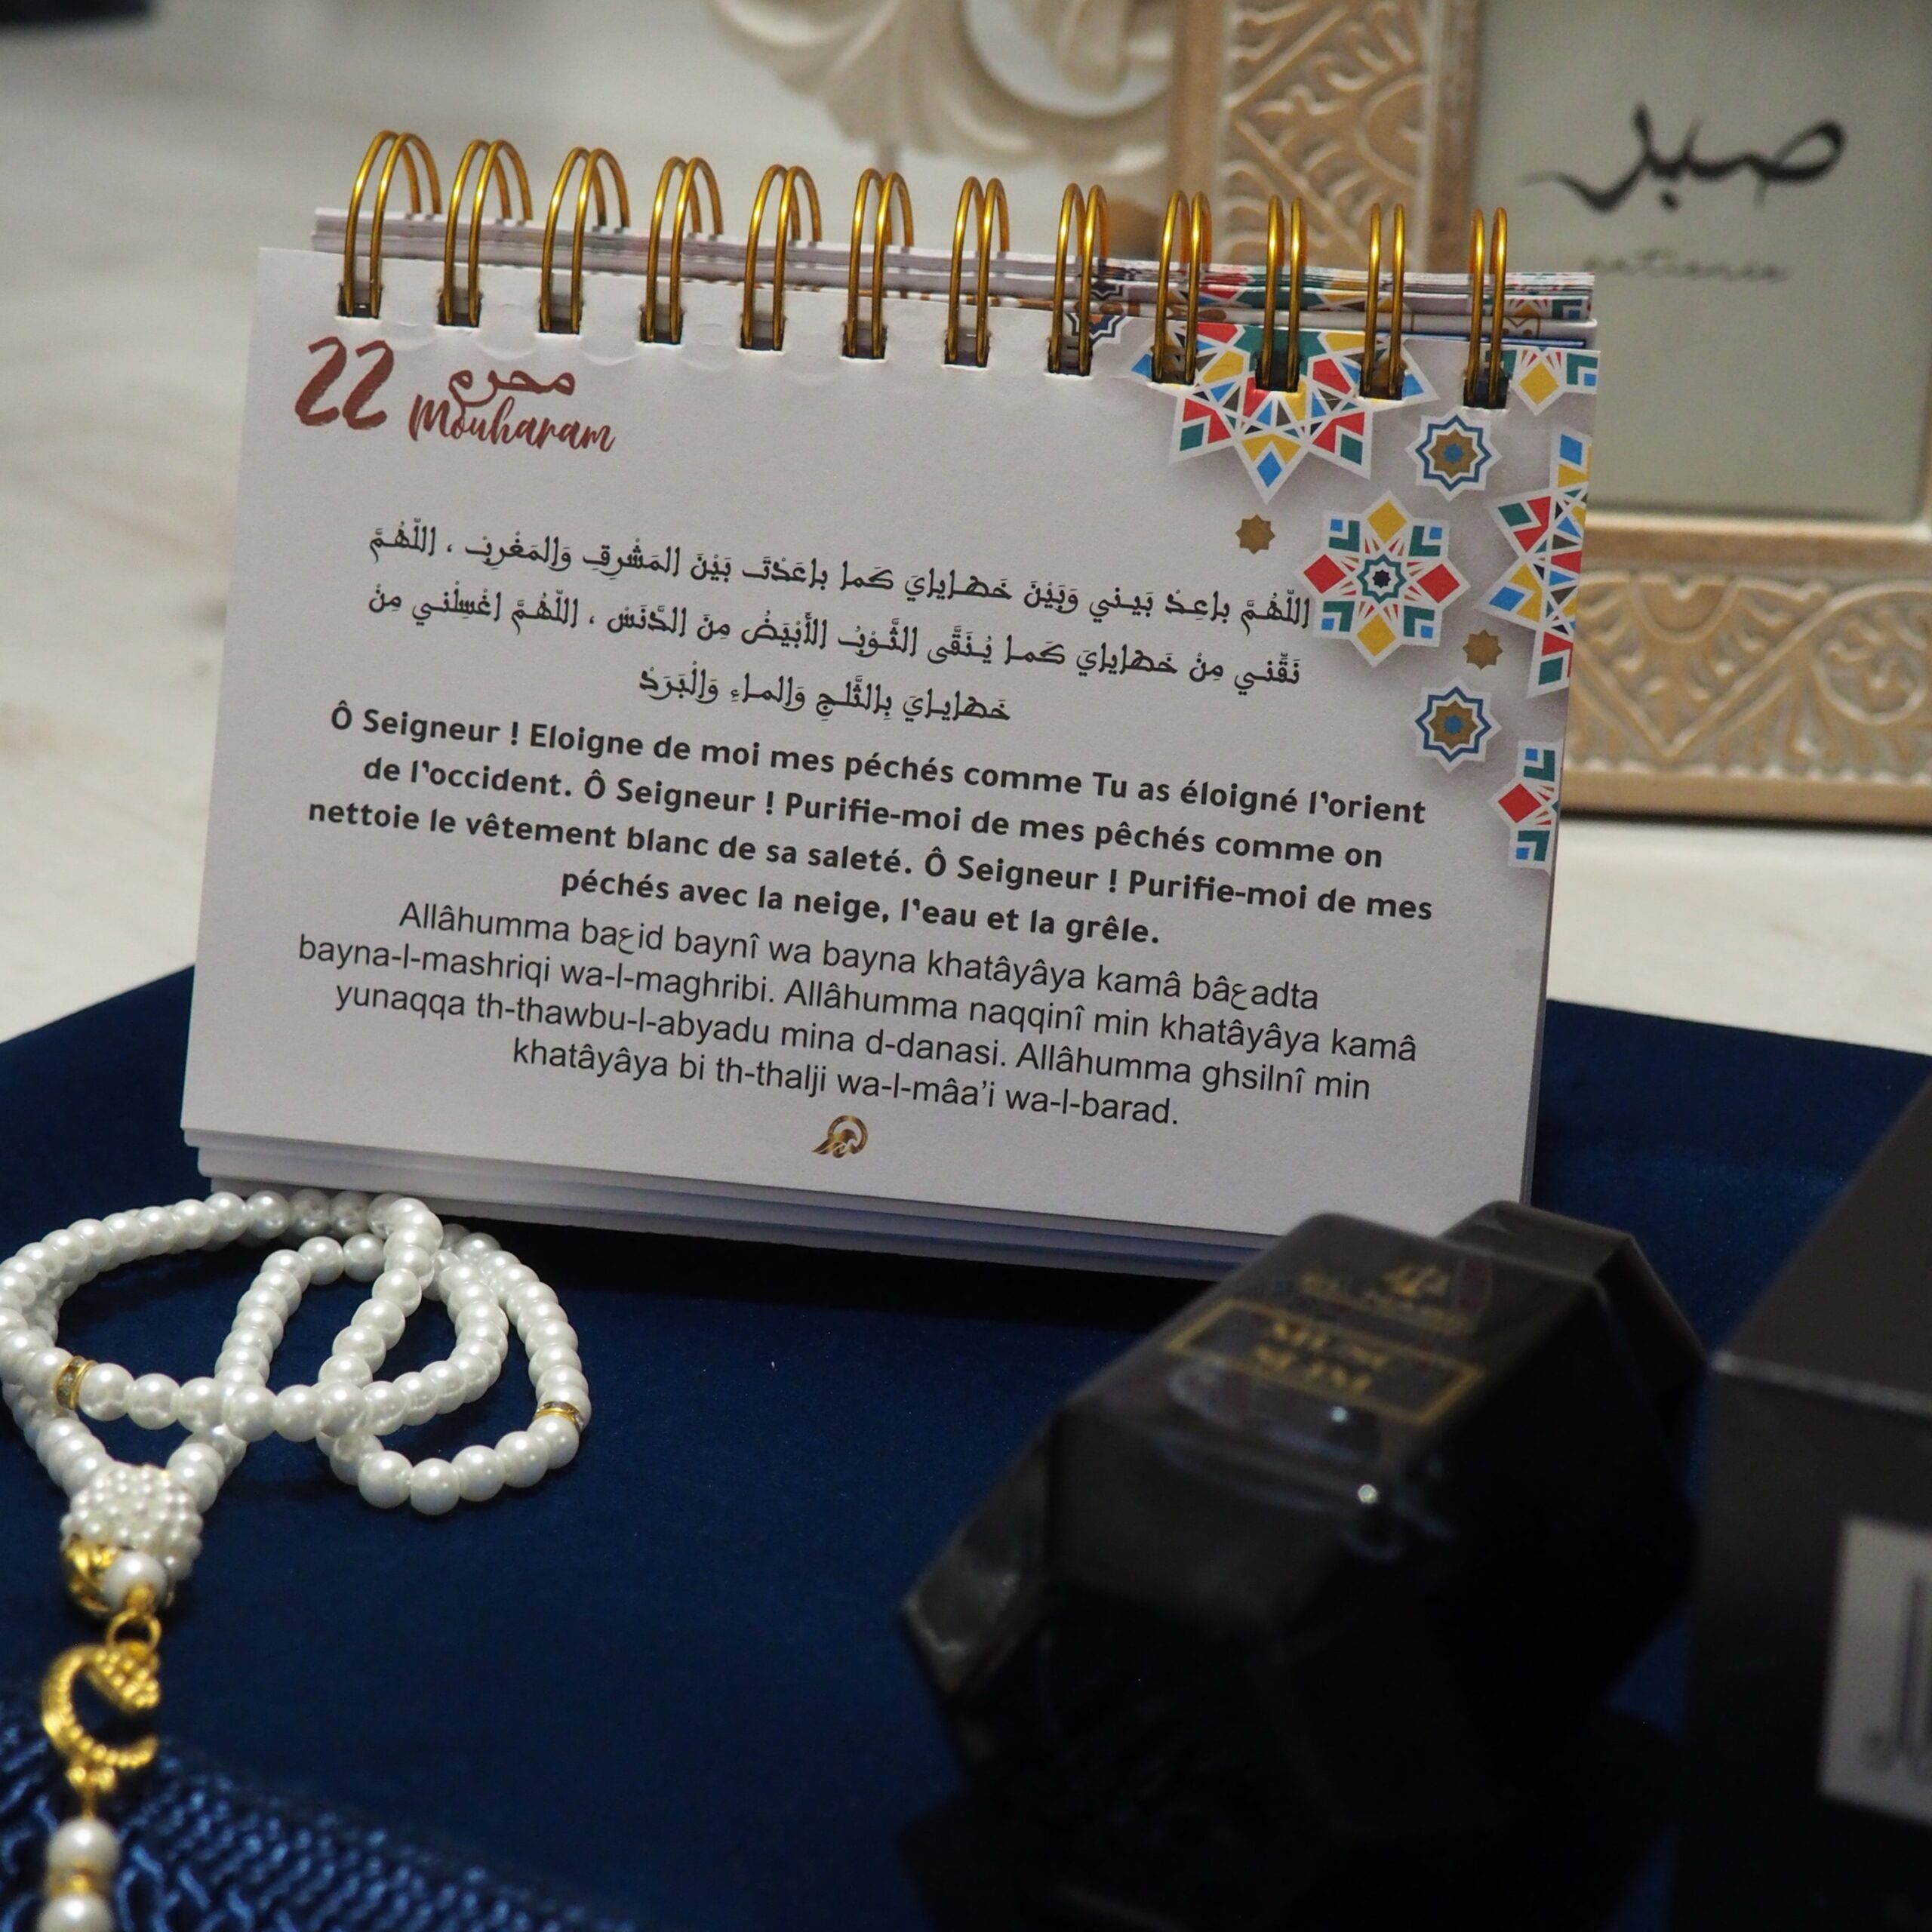 صبر
patience
22
محرم
Mouharam
اللّهُمَّ باعِدْ بَيـني وَبَيْنَ خَطـايايَ كَما باعَدْتَ بَيْنَ المَشْرِقِ وَالمَغْرِبْ ، اللّهُمَّ
نَقِّنـي مِنْ خَطايايَ كَمـا يُـنَقَّى الثَّـوْبُ الأَبْيَضُ مِنَ الدَّنَسْ ، اللّهُمَّ اغْسِلْنـي مِنْ
خَطايـايَ بِالثَّلـجِ وَالمـاءِ وَالْبَرَدْ
Ô Seigneur ! Eloigne de moi mes péchés comme Tu as éloigné l'orient
de l'occident. Ô Seigneur ! Purifie-moi de mes pêchés comme on
nettoie le vêtement blanc de sa saleté. Ô Seigneur ! Purifie-moi de mes
péchés avec la neige, l'eau et la grêle.
Allâhumma baعid baynî wa bayna khatâyâya kamâ bâعadta
bayna-l-mashriqi wa-l-maghribi. Allâhumma naqqinî min khatâyâya kamâ
yunaqqa th-thawbu-l-abyadu mina d-danasi. Allâhumma ghsilnî min
khatâyâya bi th-thalji wa-l-mâa'i wa-l-barad.